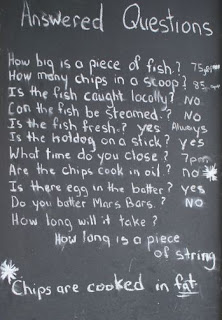 Answered Questions
How big is a piece of fish?
How many chips in a scoop?
Is the fish caught locally? NO
Can the fish be steamed? NO
Is the fish fresh? yes Always
Is the hotdog on a stick? yes
What time do you close? 7pm
Are the chips cook in oil? no
Is there egg in the batter? yes
Do you batter Mars Bars? NO
How long will it take?
How long is a piece
of string
Chips are cooked in fat